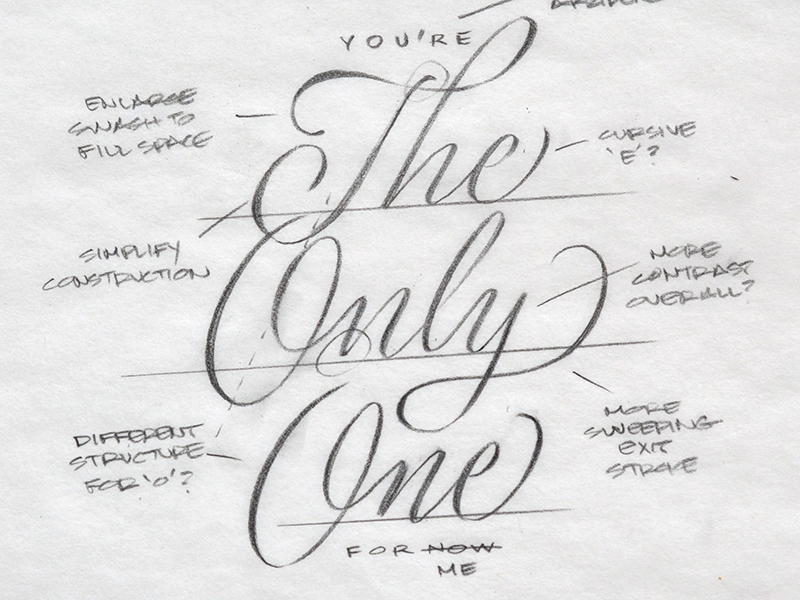 YOU'RE
The
Only
One
FOR NOW
ME
ENLARGE
SWASH TO
FILL SPACE
CURSIVE
'E'?
SIMPLIFY
CONSTRUCTION
MORE
CONTRAST
OVERALL?
DIFFERENT
STRUCTURE
FOR 'O'?
MORE
SWEEPING
EXIT
STROKE